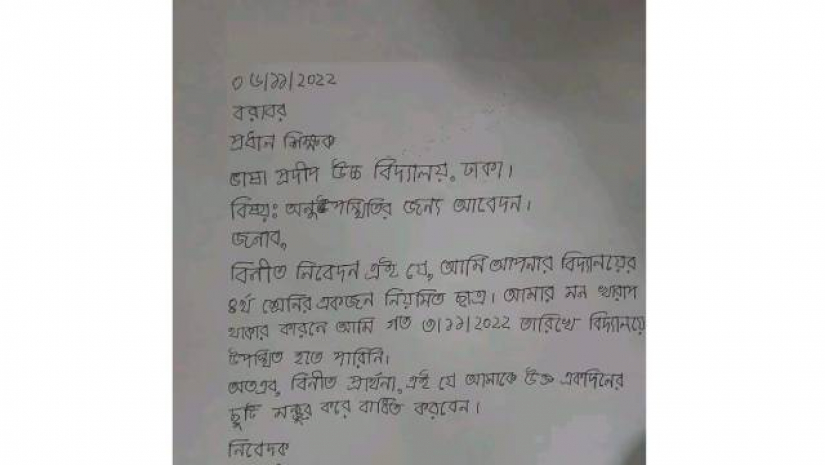 ০৬/১১/2022
বরাবর
প্রধান শিক্ষক
ভাষা প্রদীপ উচ্চ বিদ্যালয়, ঢাকা।
বিষয়ঃ অনুপস্থিতির জন্য আবেদন।
জনাব,
বিনীত নিবেদন এই যে, আমি আপনার বিদ্যালয়ের
৪র্থ শ্রেনির একজন নিয়মিত ছাত্র। আমার মন খারাপ
থাকার কারনে আমি গত ৩/১১/2022 তারিখে বিদ্যালয়ে
উপস্থিত হতে পারিনি।
অতএব, বিনীত প্রার্থনা, এই যে আমাকে উক্ত একদিনের
ছুটি মন্জুর করে বাধিত করবেন।
নিবেদক